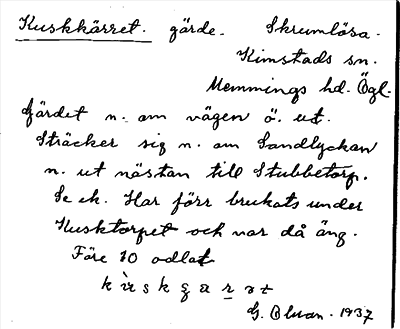 Kuskkärret. gärde. Skrumlösa.
Kimstads sn.
Memmings hd. Ögl.
Gärdet n. om vägen ö. ut.
Sträcker sig n. om Sandlyckan
n. ut nästan till Stubbetorp.
Se ek. Har förr brukats under
Kusktorpet och var då äng.
Före 10 odlat
1937